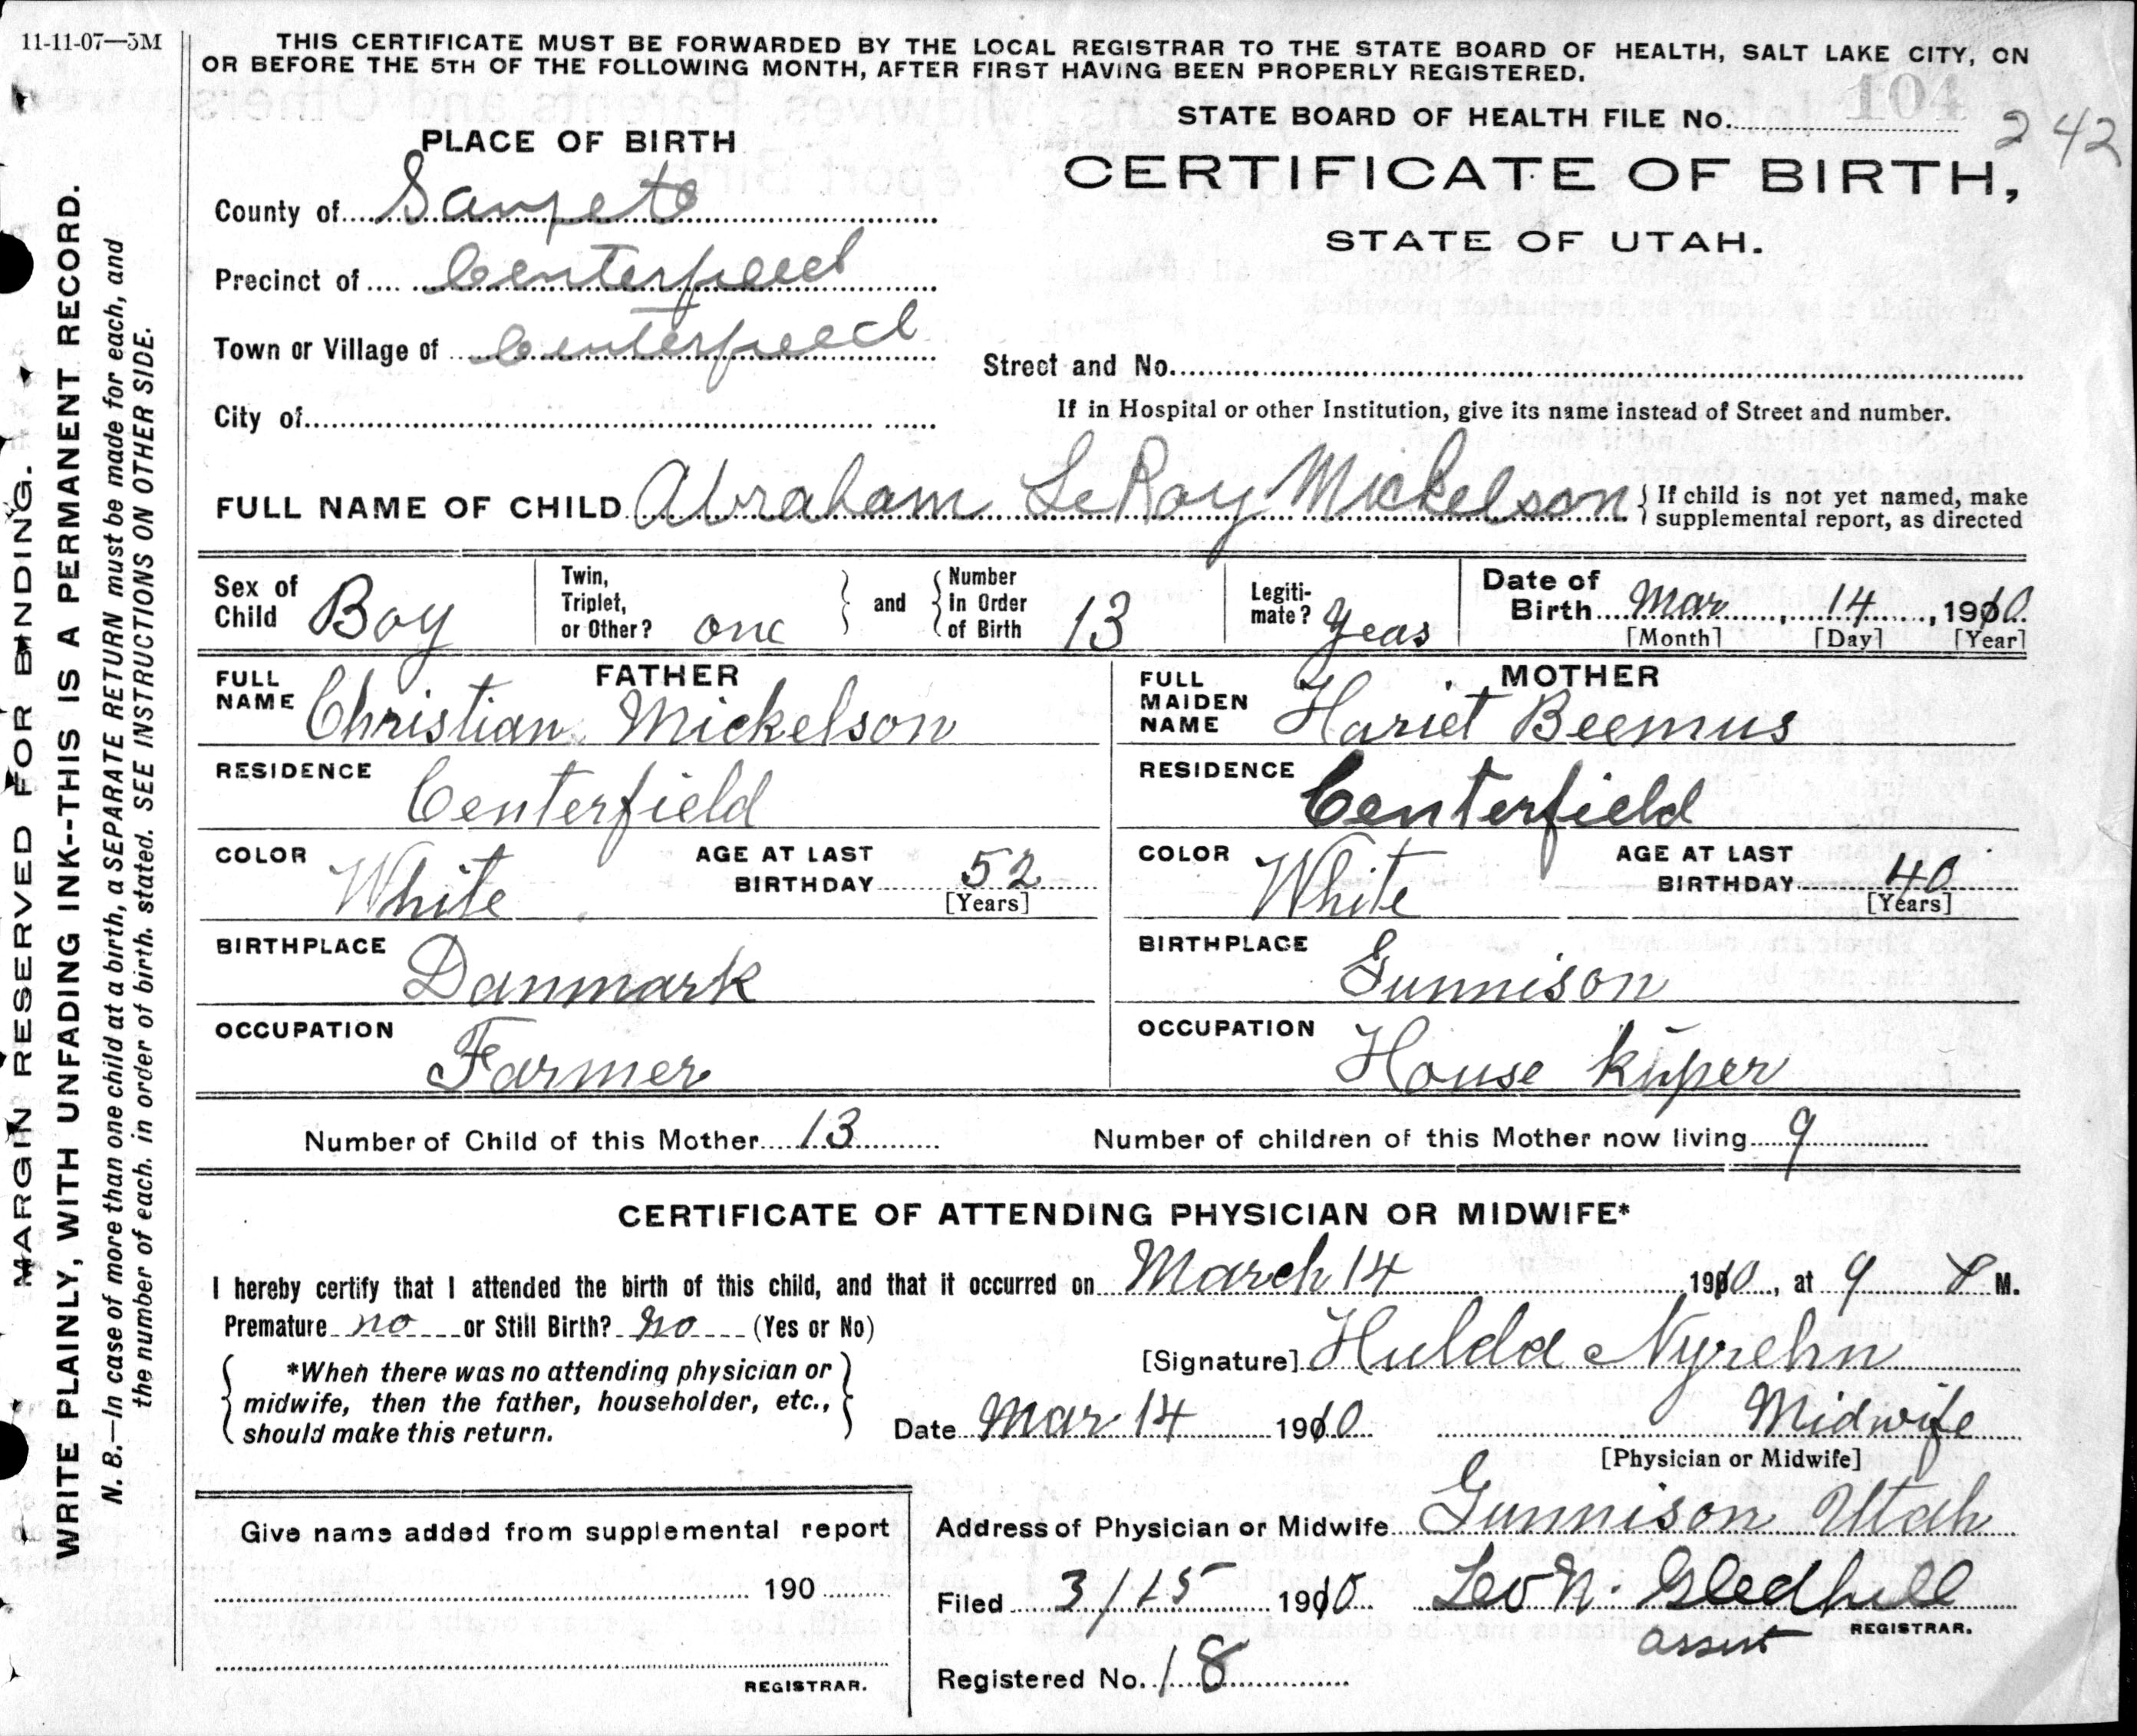 11-11-07—5M
THIS CERTIFICATE MUST BE FORWARDED BY THE LOCAL REGISTRAR TO THE STATE BOARD OF HEALTH, SALT LAKE CITY, ON
OR BEFORE THE 5TH OF THE FOLLOWING MONTH, AFTER FIRST HAVING BEEN PROPERLY REGISTERED.
104
STATE BOARD OF HEALTH FILE No. 242
PLACE OF BIRTH
CERTIFICATE OF BIRTH,
STATE OF UTAH.
County of Sanpete
Precinct of Centerfield
Town or Village of Centerfield
Street and No.
City of
If in Hospital or other Institution, give its name instead of Street and number.
FULL NAME OF CHILD Abraham LeRoy Mickelson { If child is not yet named, make
supplemental report, as directed
Sex of Child Boy
Twin, Triplet, or Other? one
and
Number in Order of Birth 13
Legiti-mate? Yeas
Date of Birth Mar, 14, 1910
[Month] [Day] [Year]
FATHER
FULL NAME Christian Mickelson
RESIDENCE Centerfield
COLOR White
AGE AT LAST BIRTHDAY 52
[Years]
BIRTHPLACE Danmark
OCCUPATION Farmer
MOTHER
FULL MAIDEN NAME Hariet Beemus
RESIDENCE Centerfield
COLOR White
AGE AT LAST BIRTHDAY 40
[Years]
BIRTHPLACE Gunnison
OCCUPATION House kiper
Number of Child of this Mother 13
Number of children of this Mother now living 9
CERTIFICATE OF ATTENDING PHYSICIAN OR MIDWIFE*
I hereby certify that I attended the birth of this child, and that it occurred on March 14 1910, at 9 P M.
Premature no or Still Birth? no (Yes or No)
[Signature] Hulda Nyrehn
*When there was no attending physician or
midwife, then the father, householder, etc.,
should make this return.
Date Mar 14 1910
Midwife
[Physician or Midwife]
Give name added from supplemental report
190
REGISTRAR.
Address of Physician or Midwife Gunnison Utah
Filed 3/15 1910 Leo N. Gledhill
assist REGISTRAR.
Registered No. 18
MARGIN RESERVED FOR BINDING.
WRITE PLAINLY, WITH UNFADING INK--THIS IS A PERMANENT RECORD.
N. B.—In case of more than one child at a birth, a SEPARATE RETURN must be made for each, and
the number of each. in order of birth. stated. SEE INSTRUCTIONS ON OTHER SIDE.